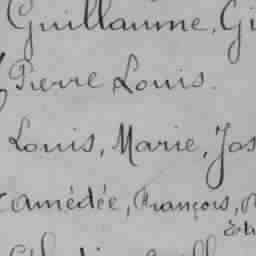 Guillaume, Gi
Pierre Louis.
Louis, Marie, Jos
amédée, François,